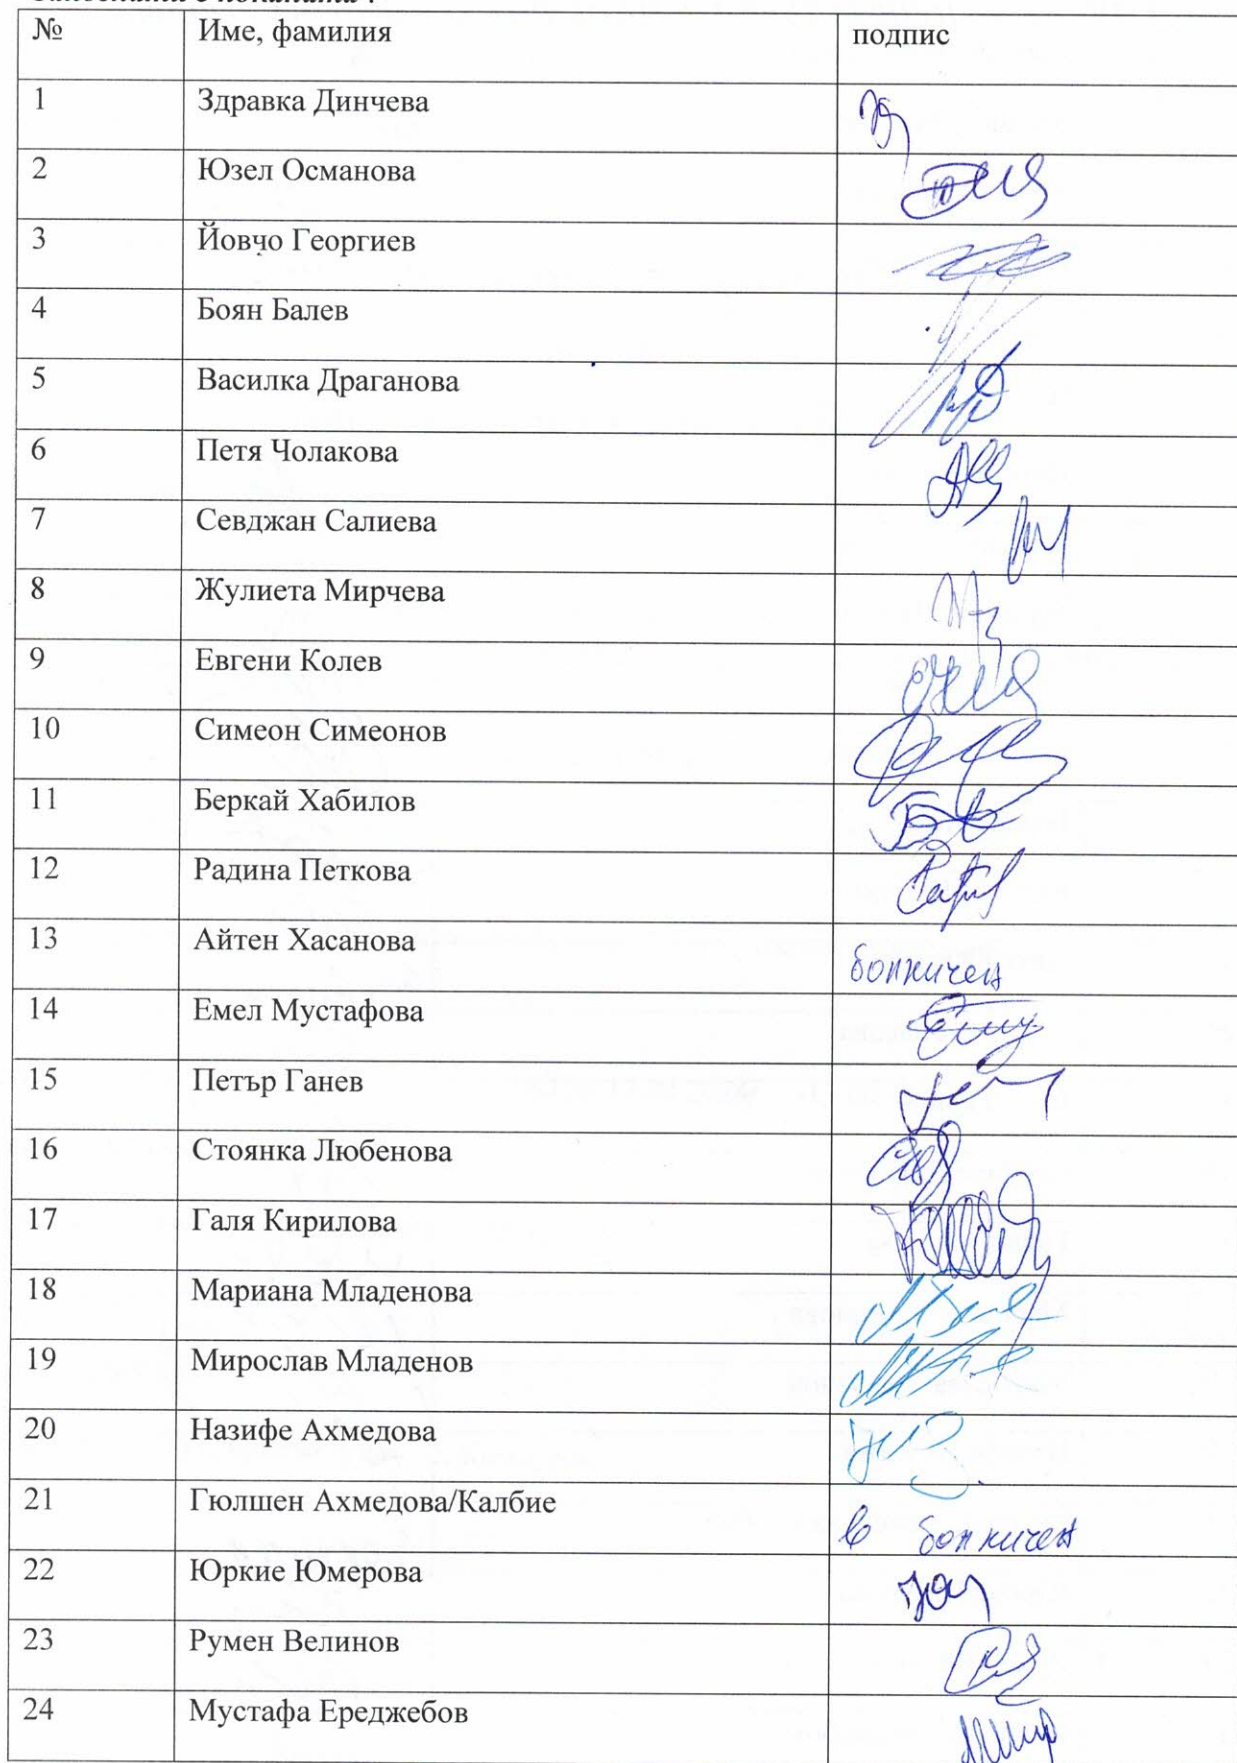 № Име, фамилия подпис
1 Здравка Динчева
2 Юзел Османова
3 Йовчо Георгиев
4 Боян Балев
5 Василка Драганова
6 Петя Чолакова
7 Севджан Салиева
8 Жулиета Мирчева
9 Евгени Колев
10 Симеон Симеонов
11 Беркай Хабилов
12 Радина Петкова
13 Айтен Хасанова болничен
14 Емел Мустафова
15 Петър Ганев
16 Стоянка Любенова
17 Галя Кирилова
18 Мариана Младенова
19 Мирослав Младенов
20 Назифе Ахмедова
21 Гюлшен Ахмедова/Калбие в болничен
22 Юркие Юмерова
23 Румен Велинов
24 Мустафа Ереджебов